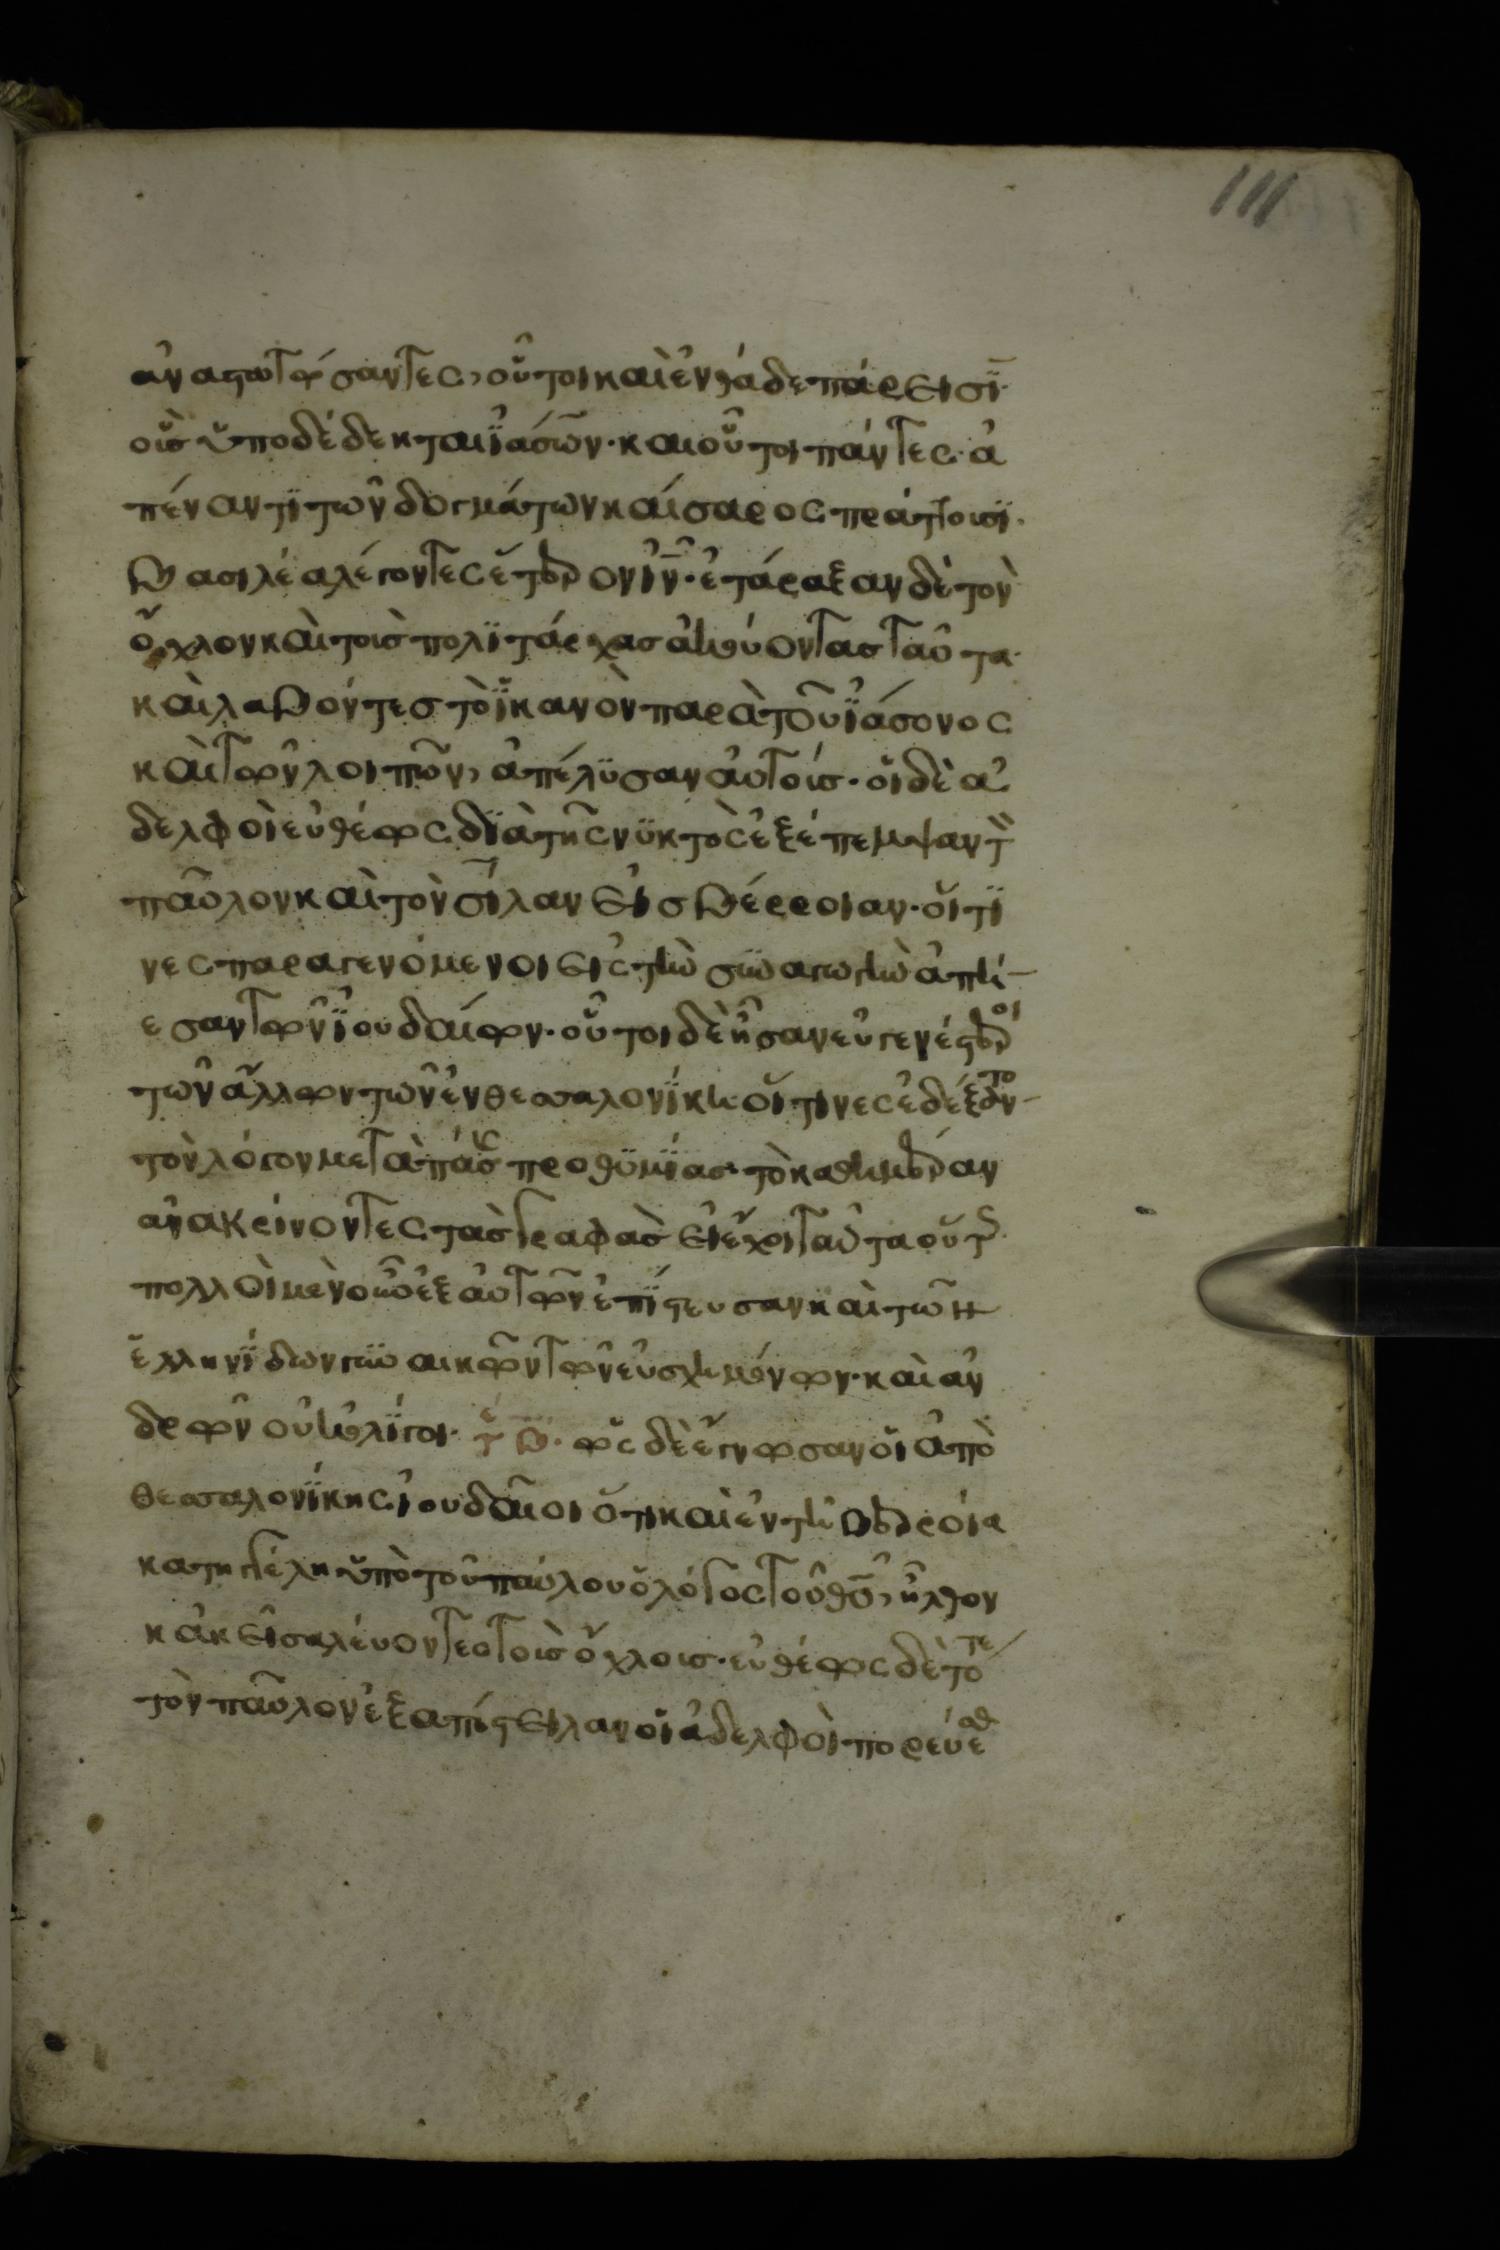 111
ἀναστατώσαντες, οὗτοι καὶ ἐνθάδε πάρεισϊ̄·
οὓς ὑποδέδεκται ϊάσων· και οὗτοι πάντες ἀ
πέναντϊ τῶν δογμάτων καίσαρος πράττουσϊ·
βασιλέα λέγοντες ἕτερον ἰ̄ν̄· ἐτάραξαν δὲ τὸν
ὄχλον καὶ τοὺς πολϊτάρχας ἀκούοντας ταῦτα·
καὶ λαβόντες τὸ ϊκανὸν παρὰ τοῦ ϊάσονος
καὶ τῶν λοιπῶν, ἀπέλϋσαν αὐτούς· οἱ δὲ ἀ
δελφοὶ εὐθέως δϊὰ τῆς νϋκτὸς ἐξέπεμψαν τὸ
παῦλον καὶ τὸν σίλαν εἰς βέρροιαν· οἵτϊ
νες παραγενόμενοι εἰς τὴν συναγωγὴν ἀπή
εσαν τῶν ϊουδαίων· οὗτοι δὲ ἦσαν εὐγενέστεροι
τῶν ἄλλων τῶν ἐν θεσσαλονϊκη· οἵτινες ἐδέξαντο
τὸν λόγον μετὰ πάσης προθϋμϊας· τὸ καθημέραν
ἀνακρίνοντες τὰς γραφὰς εἰ ἔχοι ταῦτα οὕτ
πολλοὶ μὲν οὖν ἐξ αὐτῶν ἐπϊστευσαν καὶ τῶν
ἑλληνϊδων γυναικῶν τῶν εὐσχημόνων· καὶ ἀν
δρῶν οὐκ ὀλϊγοι· ὡς δὲ ἔγνωσαν οἱ ἀπὸ
θεσσαλονϊκης ἰουδαῖοι ὅτι καὶ ἐν τῇ βεροία
κατηγγέλη ὑπὸ τοῦ παύλου ὁ λόγος τοῦ θῡ, ἦλθον
κἀκεῖ σαλέυοντες τοὺς ὄχλους· εὐθέως δὲ τότε
τὸν παῦλον ἐξαπέστειλαν οἱ ἀδελφοὶ πορεύεσθ